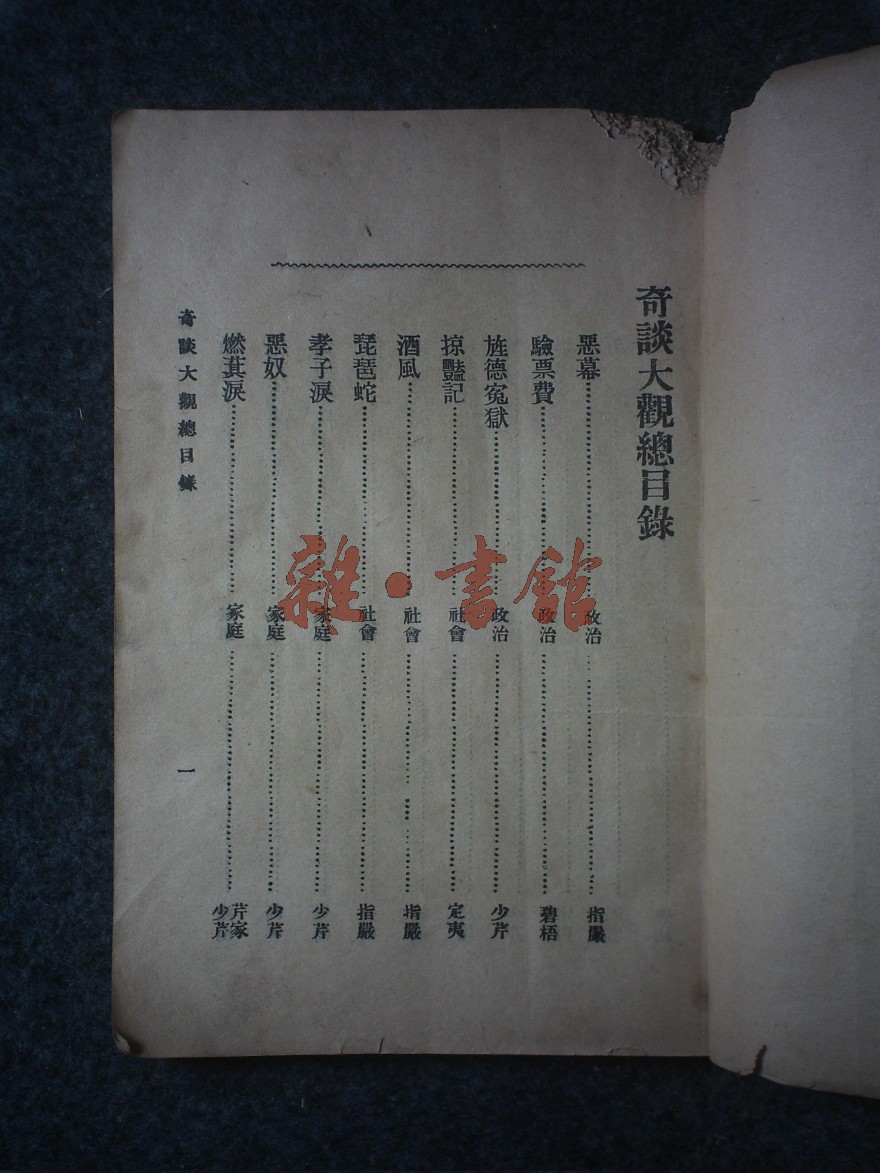 奇談大觀總目錄
惡幕……政治……指嚴
驗票費……政治……碧梧
旌德冤獄……政治……少芹
掠豔記……社會……定夷
酒風……社會……指嚴
琵琶蛇……社會……指嚴
孝子淚……家庭……少芹
惡奴……家庭……少芹
燃萁淚……家庭……芹家 少芹
奇談大觀總目錄
一
雜·書館